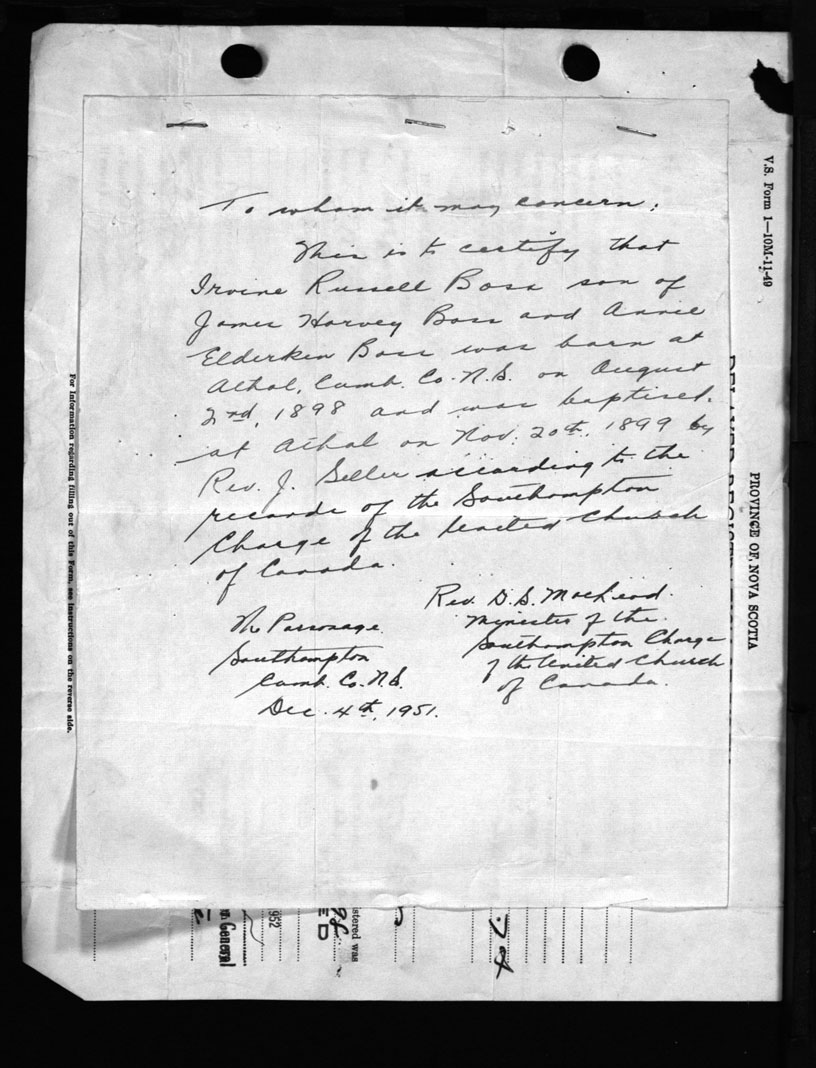 To whom it may concern:
This is to certify that
Irvine Russell Boss son of
James Harvey Boss and Annie
Elderkin Boss was born at
Athol, Cumb. Co. N.S. on August
2nd, 1898 and was baptised
at Athol on Nov. 20th, 1899 by
Rev. J. Seller according to the
records of the Southampton
Charge of the United Church
of Canada.
Rev. D. S. MacLeod.
Minister of the
Southampton Charge
of the United Church
of Canada.
The Parsonage
Southampton
Cumb. Co. N.S.
Dec. 4th, 1951.
V.S. Form 1—10M-11-49
PROVINCE OF NOVA SCOTIA
For information regarding filling out of this Form, see instructions on the reverse side.
istered was
952
General